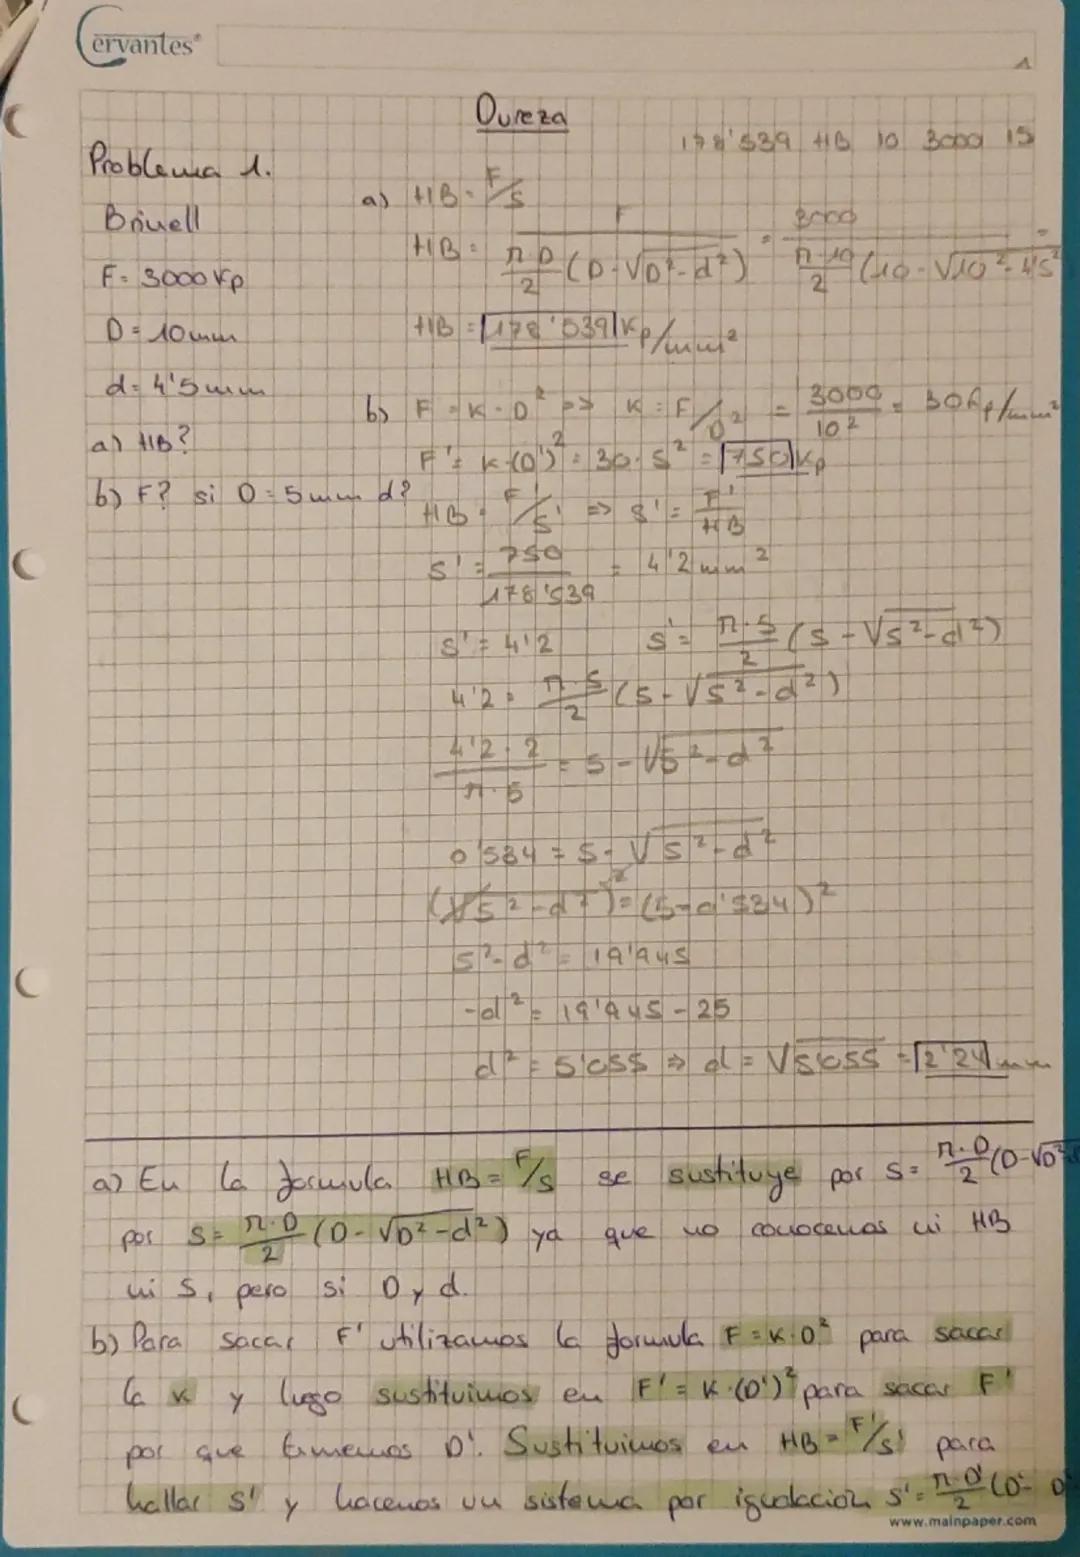 Cervantes®
1
Dureza
178'539 HB 10 3000 15
Problema 1.
Brinell
F = 3000 Kp
D = 10 mm
d = 4'5 mm
a) HB?
b) F? si D = 5 mm d?
a) HB = F/S
HB = F / (π·D/2 (D - √D² - d²)) = 3000 / (π·10/2 (10 - √10² - 4'5²)) =
HB = 178'539 Kp/mm²
b) F = K · D² => K = F/D² = 3000/10² = 30 Kp/mm²
F' = K·(D')² = 30 · 5² = 750 Kp
HB = F'/S' => S' = F'/HB
S' = 750/178'539 = 4'2 mm²
S' = 4'2 S' = π·5/2 (5 - √5² - d²)
4'2 = π·5/2 (5 - √5² - d²)
4'2 · 2 / π·5 = 5 - √5² - d²
0'534 = 5 - √5² - d²
(√5² - d²)² = (5 - 0'534)²
5² - d² = 19'945
-d² = 19'945 - 25
d² = 5'055 => d = √5'055 = 2'24 mm
a) En la formula HB = F/S se sustituye por S = π·D/2 (D - √D²
por S = π·D/2 (D - √D² - d²) ya que no conocemos ni HB
ni S, pero si D y d.
b) Para sacar F' utilizamos la formula F = K·D² para sacar
la K y luego sustituimos en F' = K·(D')² para sacar F'
por que tenemos D'. Sustituimos en HB = F'/S' para
hallar S' y hacemos un sistema por igualación S' = π·D'/2 (D'-
www.mainpaper.com